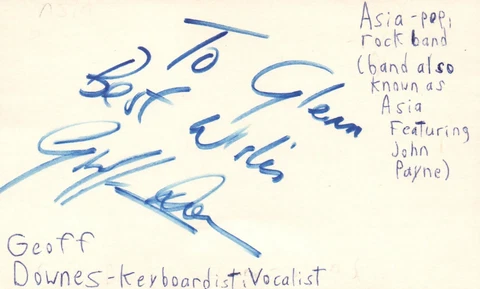 To Glenn
Best Wishes
Geoff Downes
Asia-pop,
rock band
(band also
known as
Asia
Featuring
John
Payne)
Geoff
Downes-keyboardist; Vocalist